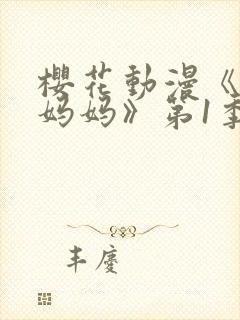 櫻花動漫《
妈妈》第1季
丰慶